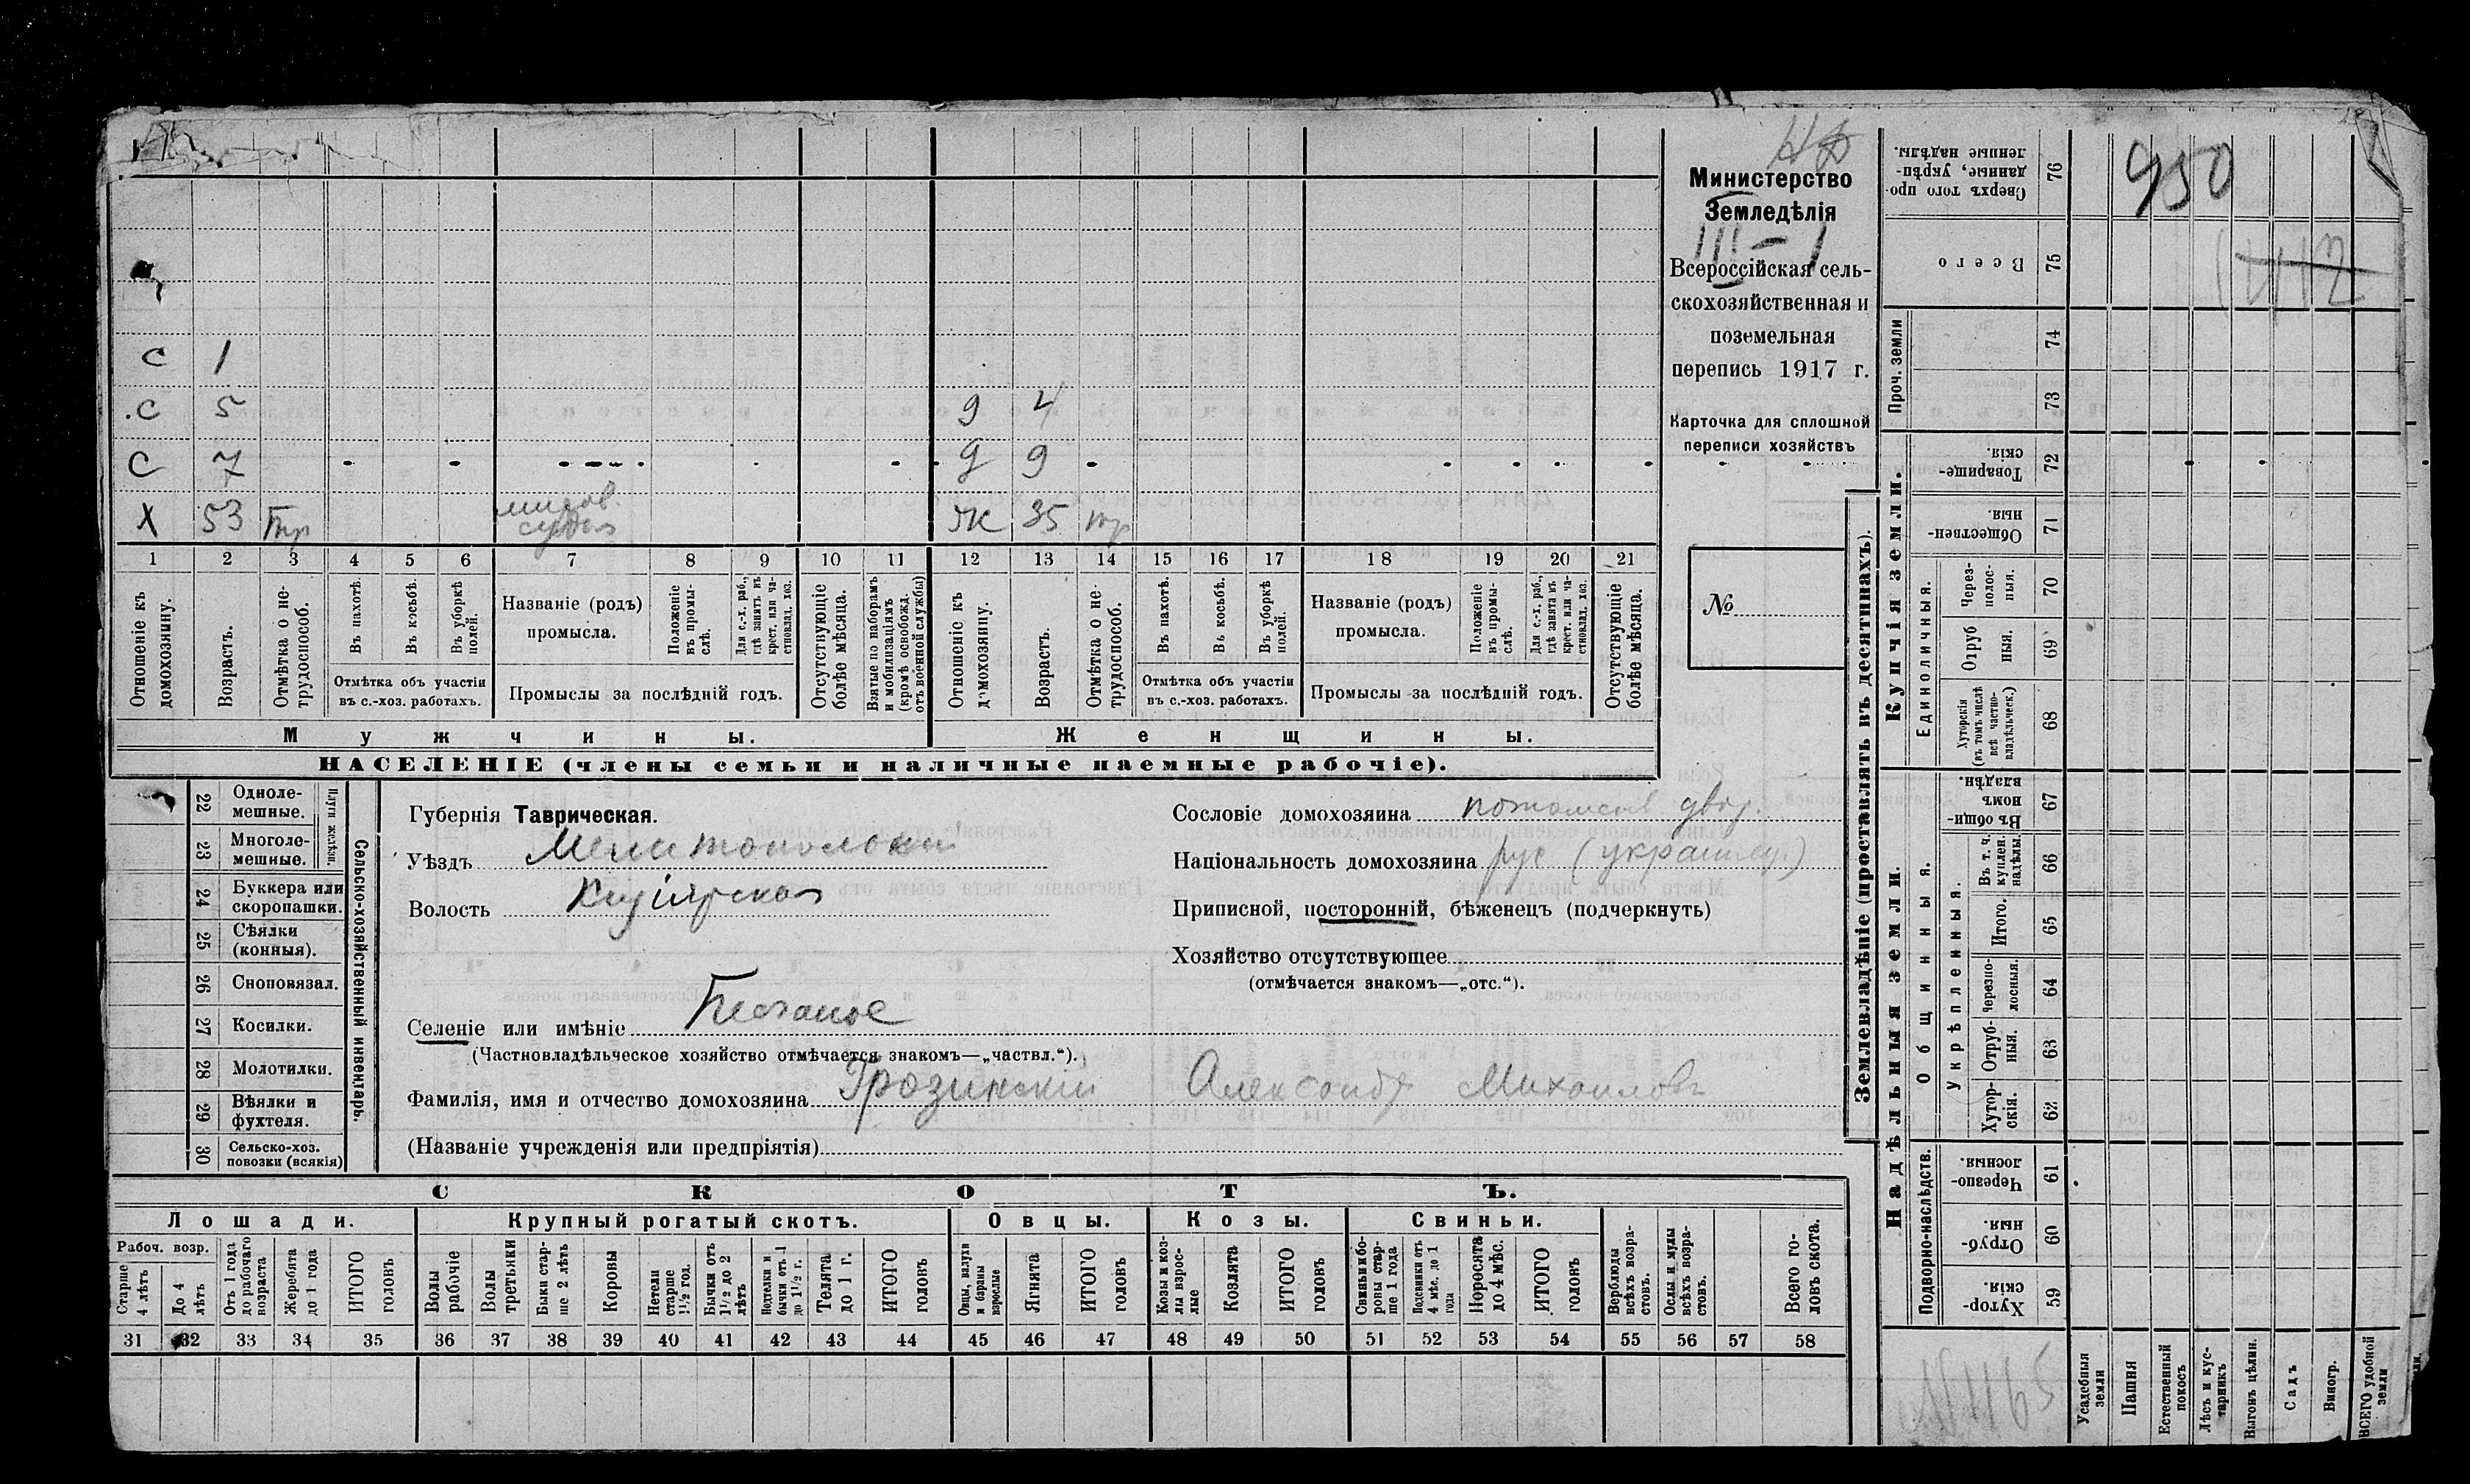 Министерство
Земледѣлія
III – 1
Всероссійская сель-
скохозяйственная и
поземельная
перепись 1917 г.
Карточка для сплошной
переписи хозяйствъ
№
С 1
С 5 д 4
С 7 д 9
Х 53 миров. Ж 35
судья
1 2 3 4 5 6 7 8 9 10 11 12 13 14 15 16 17 18 19 20 21
Отношеніе къ домохозяину.
Возрастъ.
Отмѣтка о не-
трудоспособ.
Въ пахотѣ.
Въ косьбѣ.
Въ уборкѣ
полей.
Отмѣтка объ участіи
въ с.-хоз. работахъ.
Названіе (родъ)
промысла.
Положеніе
въ промы-
слѣ.
Для с.-х. раб.,
гдѣ занятъ въ
крест. или ча-
стновлад. хоз.
Промыслы за послѣдній годъ.
Отсутствующіе
болѣе мѣсяца.
Взятые по наборамъ
и мобилизаціямъ
(кромѣ освобожд.
отъ военной службы)
Отношеніе къ
домохозяину.
Возрастъ.
Отмѣтка о не-
трудоспособ.
Въ пахотѣ.
Въ косьбѣ.
Въ уборкѣ
полей.
Отмѣтка объ участіи
въ с.-хоз. работахъ.
Названіе (родъ)
промысла.
Положеніе
въ промы-
слѣ.
Для с.-х. раб.,
гдѣ занята въ
крест. или ча-
стновлад. хоз.
Промыслы за послѣдній годъ.
Отсутствующіе
болѣе мѣсяца.
Мужчины.
Женщины.
НАСЕЛЕНІЕ (члены семьи и наличные наемные рабочіе).
22 Одноле-
мешные.
23 Многоле-
мешные.
Плуги желѣзн.
24 Буккера или
скоропашки.
25 Сѣялки
(конныя).
26 Сноповязал.
27 Косилки.
28 Молотилки.
29 Вѣялки и
фухтеля.
30 Сельско-хоз.
повозки (всякія)
Сельско-хозяйственный инвентарь.
Губернія Таврическая.
Уѣздъ Мелитопольскій
Волость
Селеніе или имѣніе
(Частновладѣльческое хозяйство отмѣчается знакомъ—„частвл.“).
Фамилія, имя и отчество домохозяина Грозинскій Александръ Михаиловъ
(Названіе учрежденія или предпріятія)
Сословіе домохозяина потомств. двор.
Національность домохозяина рус (украинец.)
Приписной, посторонній, бѣженецъ (подчеркнуть)
Хозяйство отсутствующее
(отмѣчается знакомъ—„отс.“).
СКОТЪ.
Лошади. Крупный рогатый скотъ. Овцы. Козы. Свиньи.
Рабоч. возр.
Старше
4 лѣтъ
До 4
лѣтъ
Отъ 1 года
до рабочаго
возраста
Жеребята
до 1 года
ИТОГО
головъ
Волы
рабочіе
Волы
третьяки
Быки стар-
ше 2 лѣтъ
Коровы
Нетели
старше
1½ год.
Бычки отъ
1½ до 2
лѣтъ
Подтелки и
бычки отъ 1
до 1½ г.
Телята
до 1 г.
ИТОГО
головъ
Овцы, валухи
и бараны
взрослые
Ягнята
ИТОГО
головъ
Козы и коз-
лы взрос-
лые
Козлята
ИТОГО
головъ
Свиньи и бо-
ровы стар-
ше 1 года
Подсвинки отъ
4 мѣс. до 1
года
Поросята
до 4 мѣс.
ИТОГО
головъ
Верблюды
всѣхъ возра-
стовъ.
Ослы и мулы
всѣхъ возра-
стовъ.
Всего го-
ловъ скота.
31 32 33 34 35 36 37 38 39 40 41 42 43 44 45 46 47 48 49 50 51 52 53 54 55 56 57 58
Землевладѣніе (проставлять въ десятинахъ).
Сверхъ того про-
данные, укрѣп-
ленные надѣлы.
76
950
Всего
75
Проч. земли
74
73
Купчія земли.
Товарище-
скія.
72
Обществен-
ныя.
71
Единоличныя.
Через-
полос-
ныя.
70
Отруб
ныя.
69
Хуторскія
(въ томъ числѣ
всѣ частно-
владѣльческ.)
68
Надѣльныя земли.
Общинныя.
Въ общи-
номъ
владѣн.
67
Укрѣпленныя.
Въ т. ч.
куплен.
надѣлы.
66
Итого.
65
Черезпо-
лосныя.
64
Отруб-
ныя.
63
Хутор-
скія.
62
Подворно-наслѣдств.
Черезпо-
лосныя.
61
Отруб-
ныя.
60
Хутор-
скія.
59
Усадебныя
земли
Пашня
Естественный
покосъ
Лѣсъ и кус-
тарникъ
Выгонъ цѣлин.
Садъ
Виногр.
ВСЕГО удобной
земли